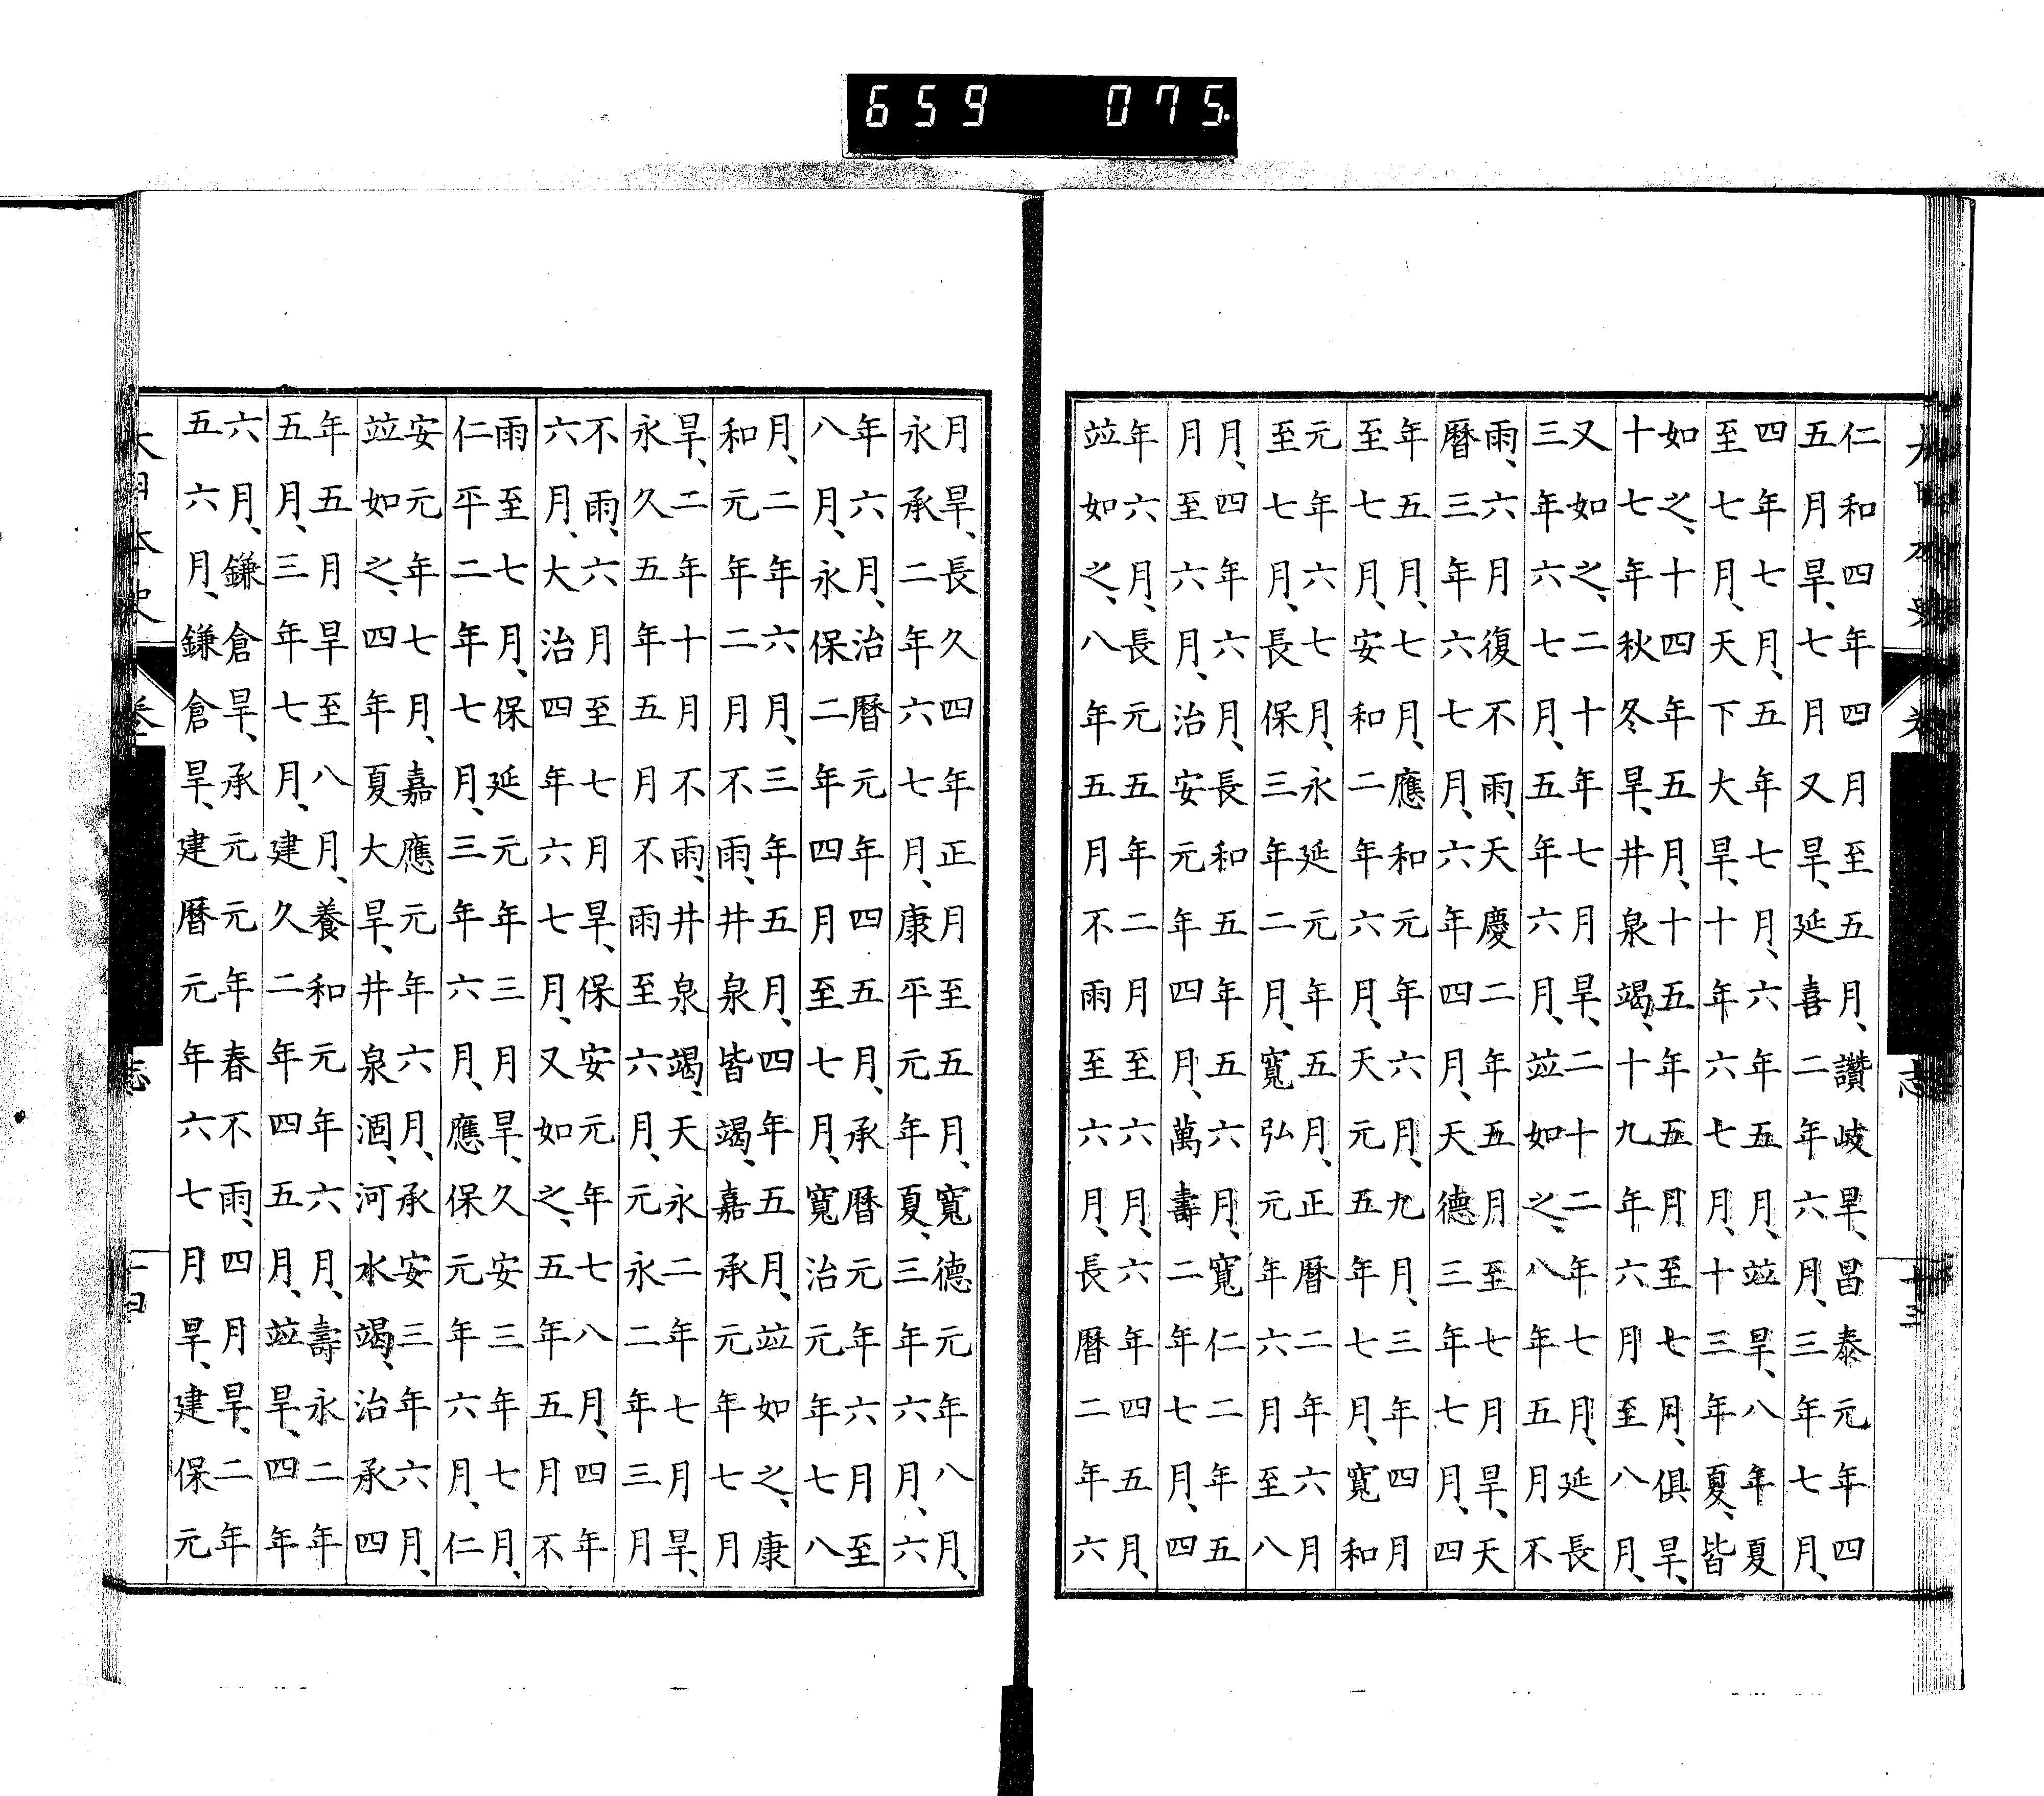 659 075
大日本史 卷 志 十三
仁和四年四月至五月、讚岐旱、昌泰元年四
五月旱、七月又旱、延喜二年六月、三年七月、
四年七月、五年七月、六年五月、竝旱、八年夏
至七月、天下大旱、十年六七月、十三年夏、皆
如之、十四年五月、十五年五月至七月、俱旱、
十七年秋冬旱、井泉竭、十九年六月至八月、
又如之、二十年七月旱、二十二年七月、延長
三年六七月、五年六月、竝如之、八年五月不
雨、六月復不雨、天慶二年五月至七月旱、天
曆三年六七月、六年四月、天德三年七月、四
年五月、七月、應和元年六月、九月、三年四月
至七月、安和二年六月、天元五年七月、寬和
元年六七月、永延元年五月、正曆二年六月
至七月、長保三年二月、寬弘元年六月至八
月、四年六月、長和五年五六月、寬仁二年五
月至六月、治安元年四月、萬壽二年七月、四
年六月、長元五年二月至六月、六年四五月、
竝如之、八年五月不雨至六月、長曆二年六
月旱、長久四年正月至五月、寬德元年八月、
永承二年六七月、康平元年夏、三年六月、六
年六月、治曆元年四五月、承曆元年六月至
八月、永保二年四月至七月、寬治元年七八
月、二年六月、三年五月、四年五月、竝如之、康
和元年二月不雨、井泉皆竭、嘉承元年七月
旱、二年十月不雨、井泉竭、天永二年七月旱、
永久五年五月不雨至六月、元永二年三月
不雨、六月至七月旱、保安元年七八月、四年
六月、大治四年六七月、又如之、五年五月不
雨至七月、保延元年三月旱、久安三年七月、
仁平二年七月、三年六月、應保元年六月、仁
安元年七月、嘉應元年六月、承安三年六月、
竝如之、四年夏大旱、井泉涸、河水竭、治承四
年五月旱至八月、養和元年六月、壽永二年
五月、三年七月、建久二年四五月、竝旱、四年
六月、鎌倉旱、承元元年春不雨、四月旱、二年
五六月、鎌倉旱、建曆元年六七月旱、建保元
大日本史 卷 志 十四